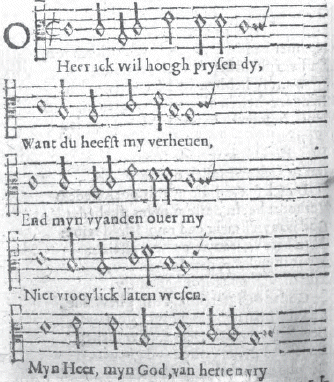 O
Heer ick wil hoogh prysen dy,
Want du heefst my verheuen,
End myn vyanden ouer my
Niet vroeylick laten wesen.
Myn Heer, myn God, van herten vry